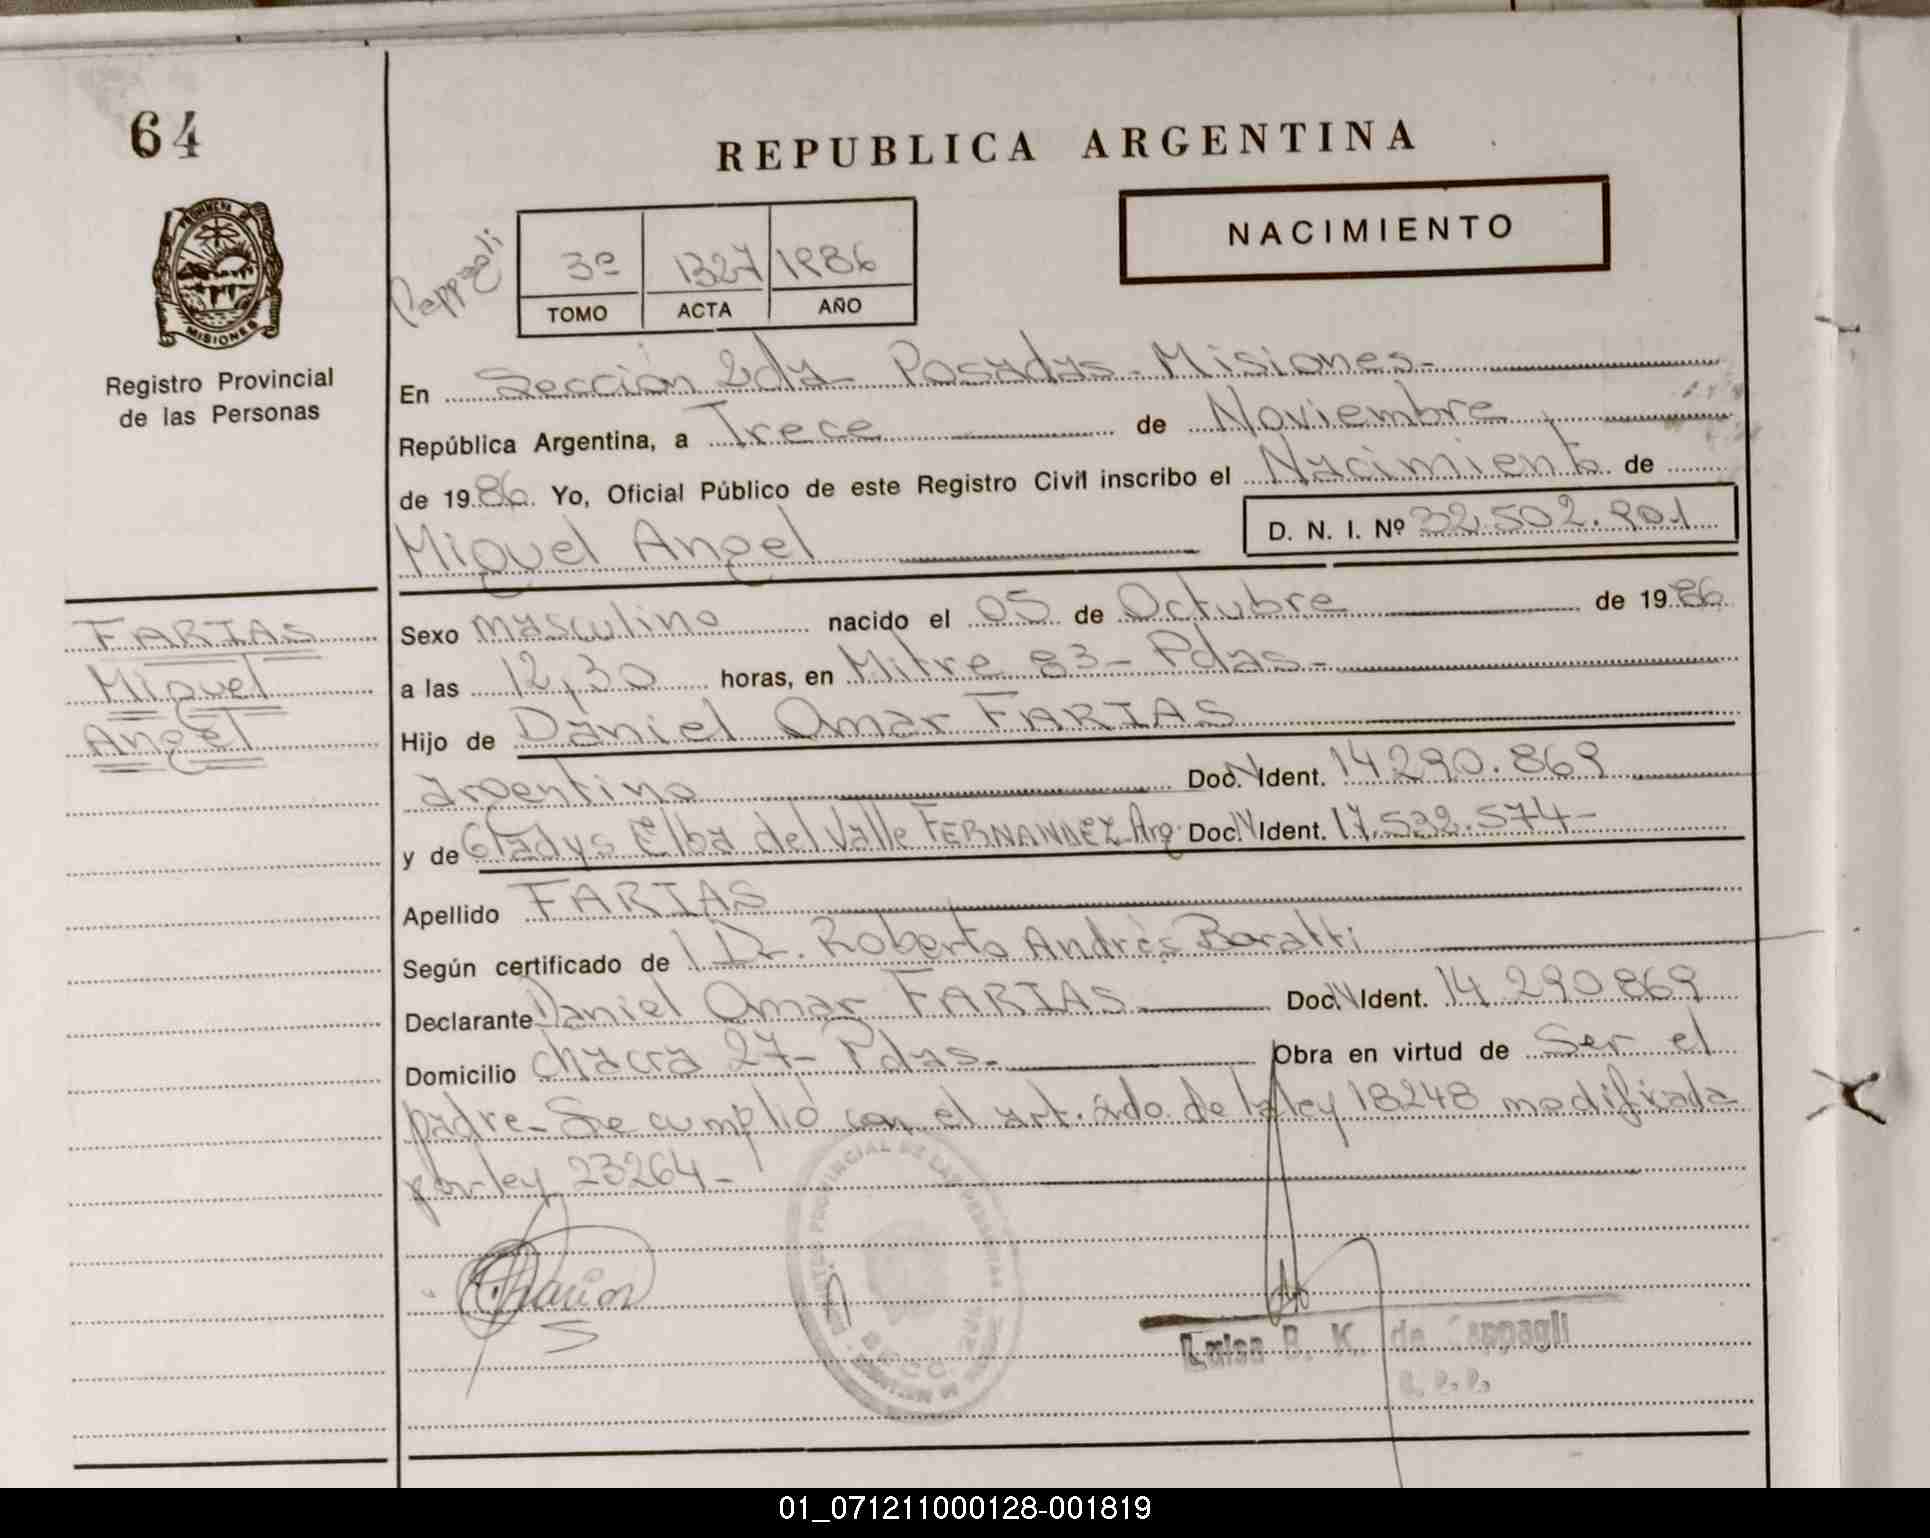 64
REPUBLICA ARGENTINA
NACIMIENTO
3º 1327 1986
TOMO ACTA AÑO
PROVINCIA DE
MISIONES
Registro Provincial
de las Personas
En Sección 2da - Posadas - Misiones -
República Argentina, a Trece de Noviembre
de 1986. Yo, Oficial Público de este Registro Civil inscribo el Nacimiento de
Miguel Angel D. N. I. Nº 32.502.901
FARIAS
Miguel
Angel
Sexo masculino nacido el 05 de Octubre de 1986
a las 12,30 horas, en Mitre 83 - Pdas -
Hijo de Daniel Omar FARIAS
argentino Doc. N Ident. 14.290.869
y de Gladys Elba del Valle FERNANDEZ Arg. Doc. N Ident. 17.532.574-
Apellido FARIAS
Según certificado de Dr. Roberto Andrés Baratti
Declarante Daniel Omar FARIAS Doc. N Ident. 14.290869
Domicilio chacra 27 - Pdas - Obra en virtud de Ser el
padre - Se cumplió con el art. 2do de la ley 18248 modificada
por ley 23264 -
Luisa B. K. de Cappagli
01_071211000128-001819